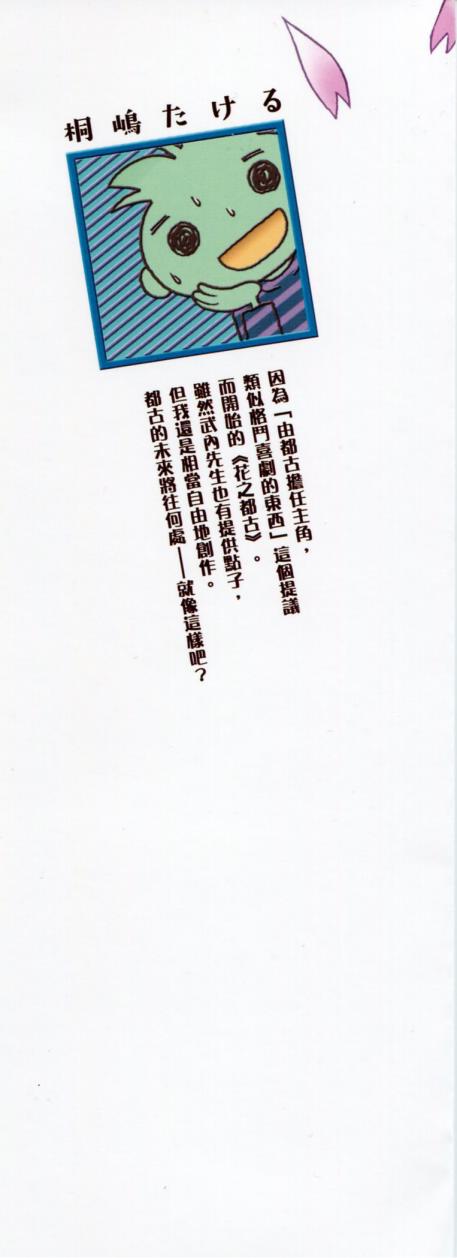 桐嶋たける
因為「由都古擔任主角，
類似格鬥喜劇的東西」這個提議
而開始的《花之都古》。
雖然武內先生也有提供點子，
但我還是相當自由地創作。
都古的未來將往何處——就像這樣吧？